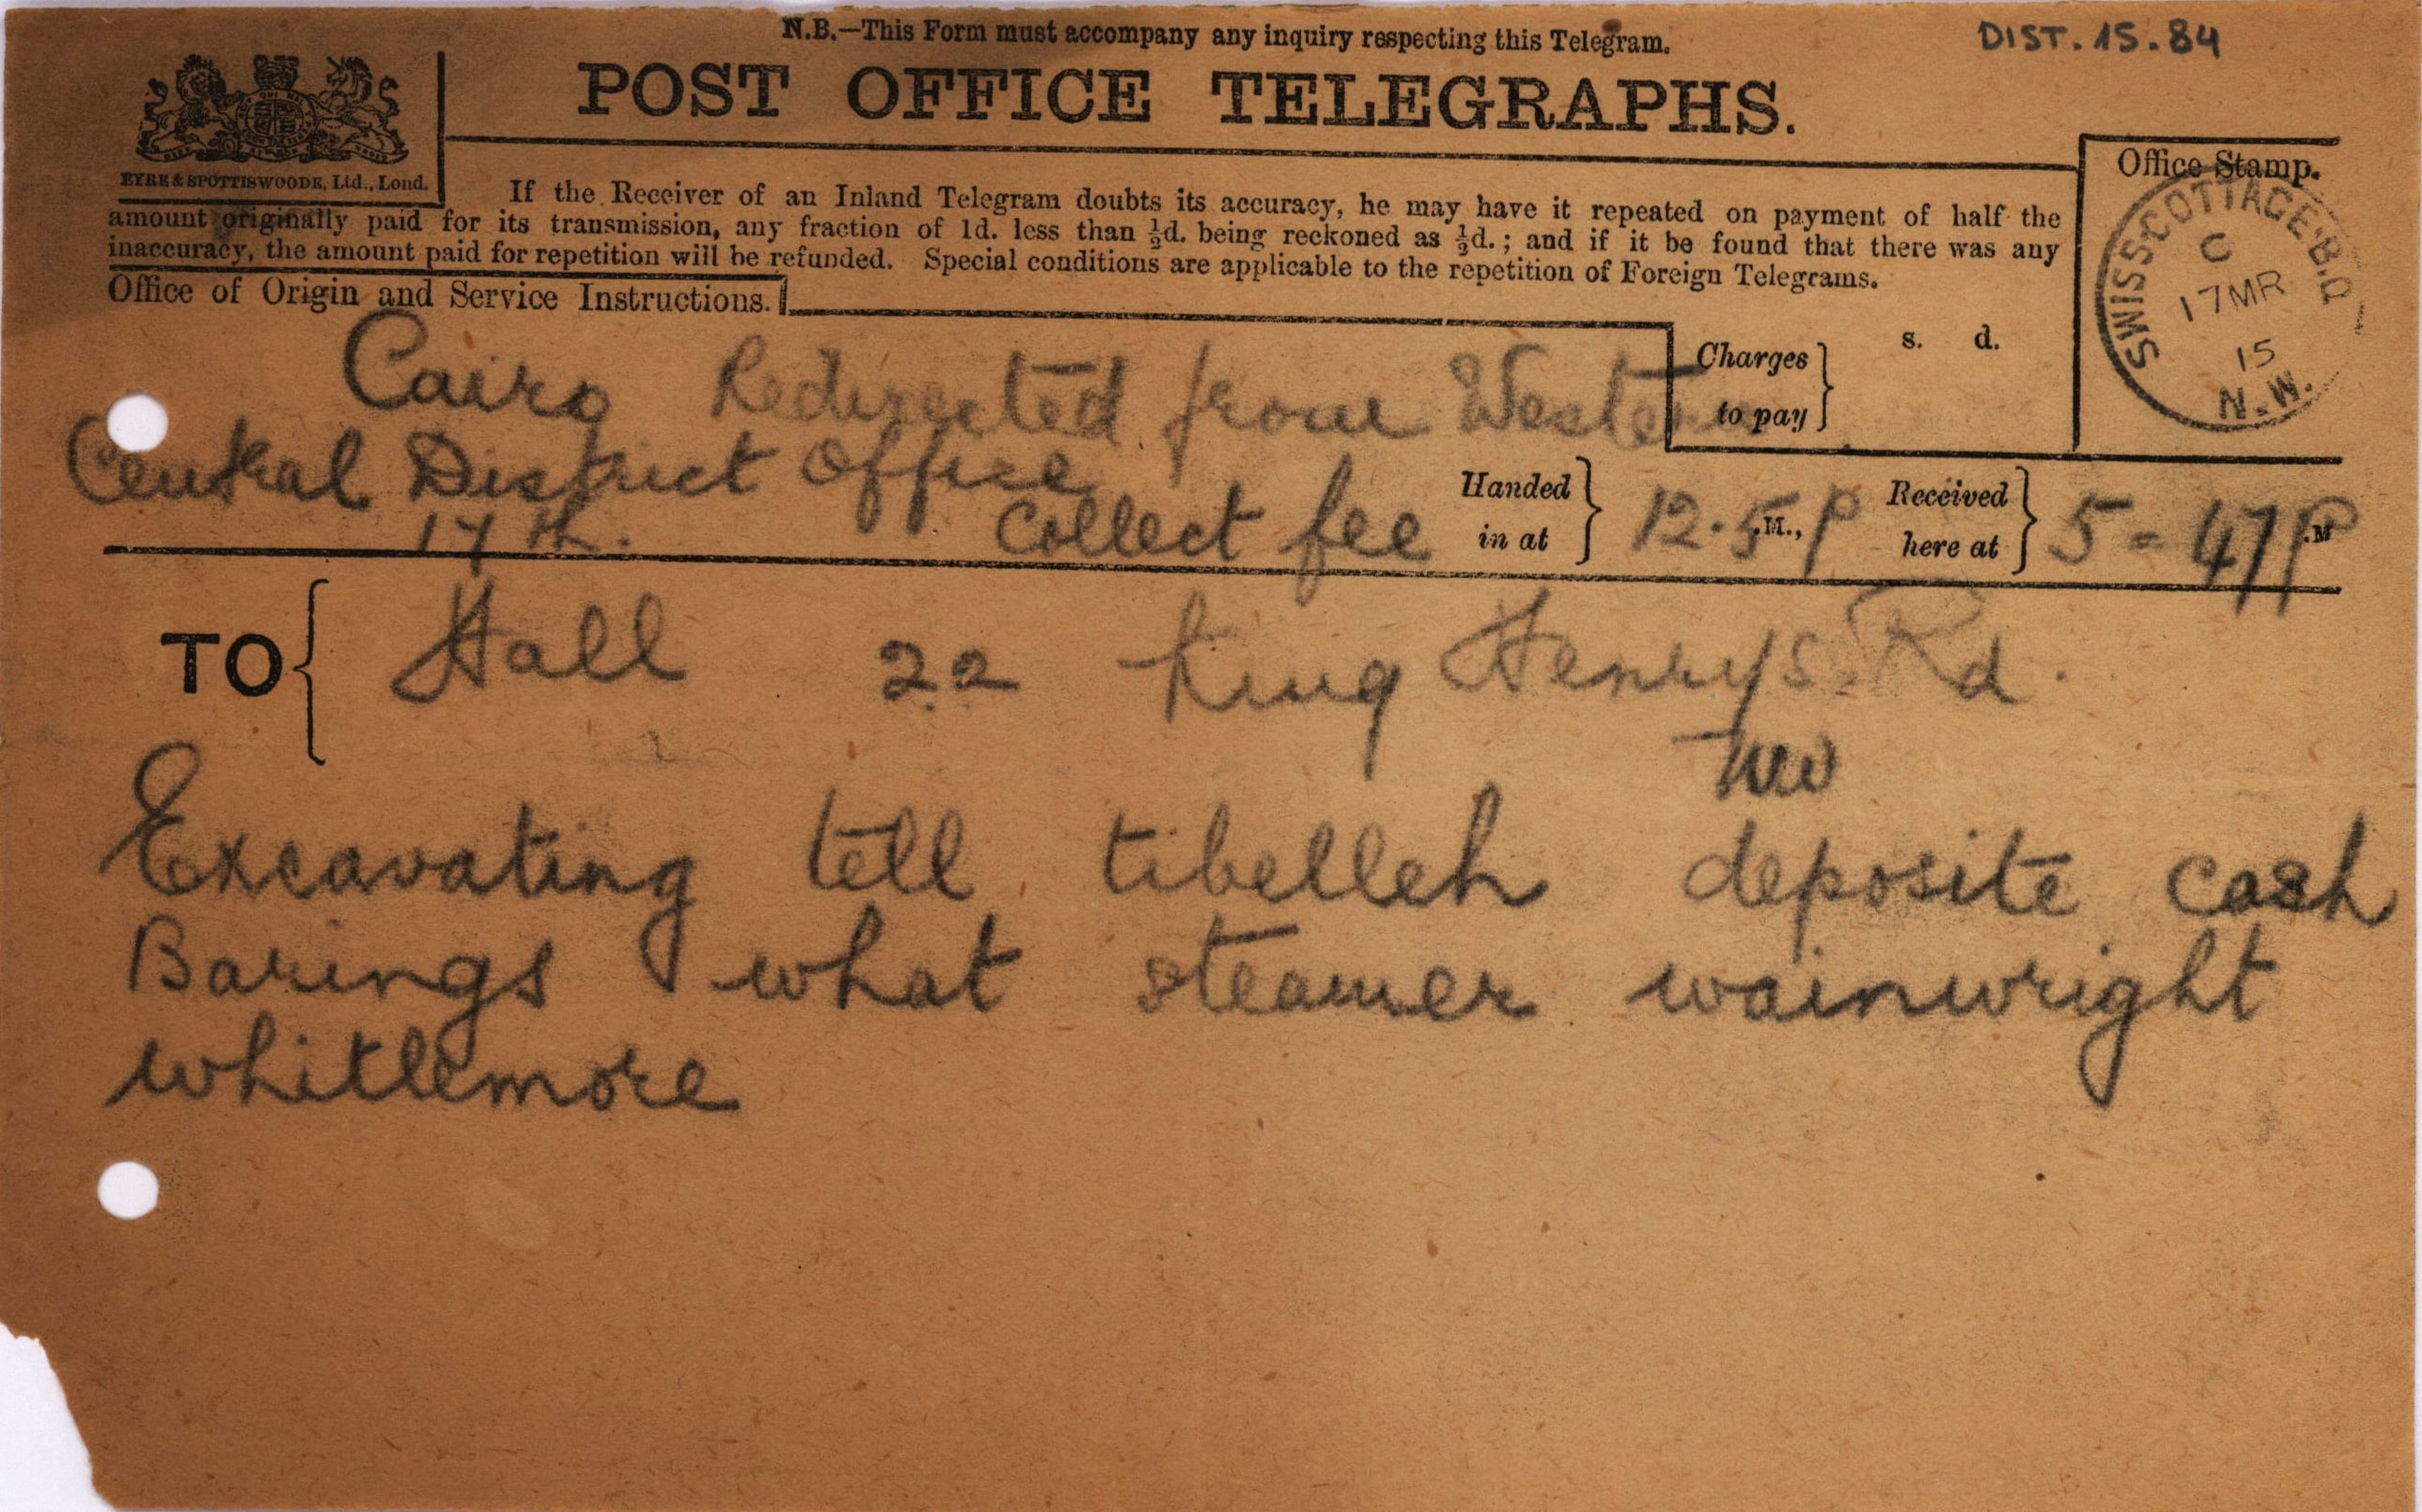 N.B.—This Form must accompany any inquiry respecting this Telegram.
DIST. 15. 84
POST OFFICE TELEGRAPHS.
EYRE & SPOTTISWOODE, Ltd., Lond.
If the Receiver of an Inland Telegram doubts its accuracy, he may have it repeated on payment of half the
amount originally paid for its transmission, any fraction of 1d. less than ½d. being reckoned as ½d.; and if it be found that there was any
inaccuracy, the amount paid for repetition will be refunded. Special conditions are applicable to the repetition of Foreign Telegrams.
Office of Origin and Service Instructions.
Office Stamp.
SWISS COTTAGE B.O.
C
17 MR
15
N.W.
Charges to pay
s. d.
Cairo Redirected from Western
Central District Office
17th. Collect fee
Handed in at 12.5 P .M.,
Received here at 5=47 P .M
TO Hall 22 King Henrys Rd.
NW
Excavating tell tibelleh deposite cash
Barings what steamer wainwright
whittemore